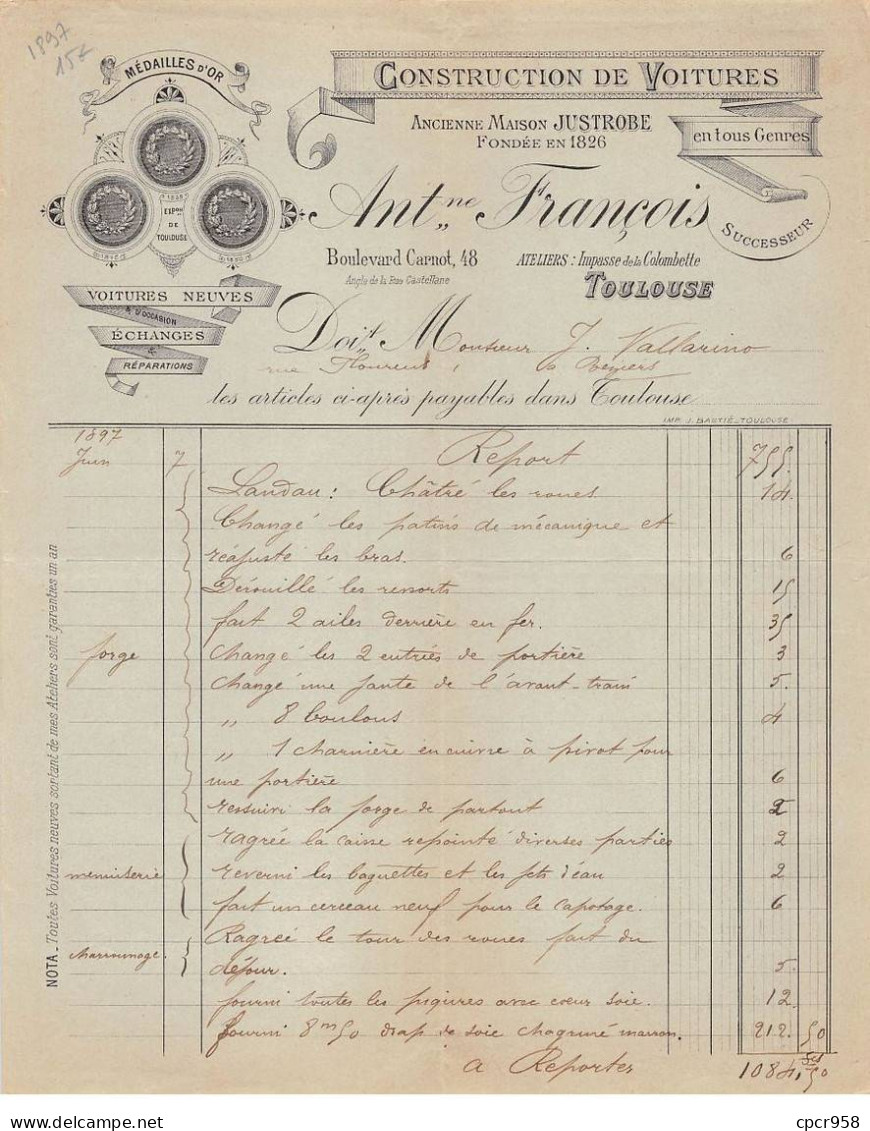 1897
15€
MÉDAILLES D'OR
1858
EXPon
DE
TOULOUSE
CONSTRUCTION DE VOITURES
en tous Genres
ANCIENNE MAISON JUSTROBE
FONDÉE EN 1826
Ant„ne François
SUCCESSEUR
Boulevard Carnot, 48
Angle de la Rue Castellane
ATELIERS: Impasse de la Colombette
TOULOUSE
VOITURES NEUVES
& D'OCCASION
ÉCHANGES
&
RÉPARATIONS
Doit M onsieur J. Vallarino
rue à Béziers
les articles ci-après payables dans Toulouse
IMP. J. BASTIÉ_TOULOUSE
NOTA_ Toutes Voitures neuves sortant de mes Ateliers sont garanties un an
1897
Juin 7 Report 755.
Landau: Châtré les roues 14.
Changé les patins de mécanique et
réajusté les bras. 6
Dérouillé les ressorts 15
fait 2 ailes derrière en fer. 35
forge changé les 2 entrées de portière 3
changé une jante de l'avant-train 5.
„ 8 boulons 4
„ 1 charnière en cuivre à pivot pour
une portière 6
ressuivi la forge de partout 2
ragrée la caisse repointé diverses parties 2
menuiserie reverni les baguettes et les jets d'eau 2
fait un cerceau neuf pour le capotage. 6
Ragréé le tour des roues fait du
charronnage. déjour. 5.
fourni toutes les piqures avec cœur soie. 12
fourni 8m50 drap de soie chagriné marron. 212. 50
a Reporter 1084, 50
cpcr958